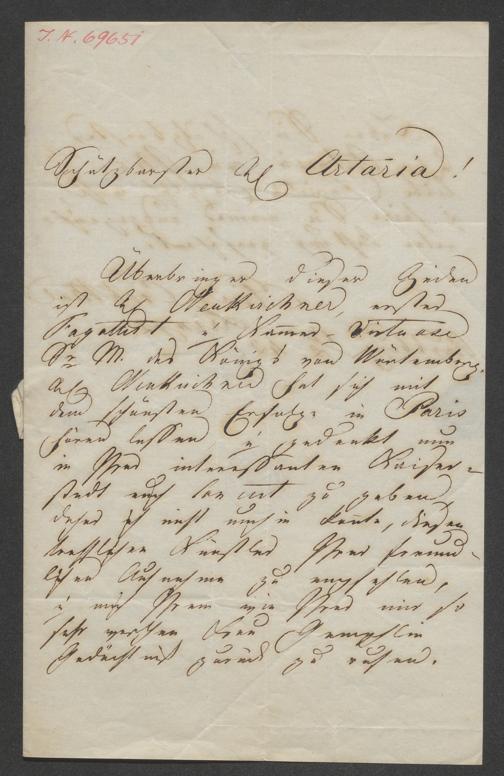 I. N. 69651
Schätzbarster H Artaria!
Überbringer dieser Zeilen
ist H Neukirchner, erster
Fagottist u Kammer-Virtuose
Sr M. des Königs von Würtemberg.
H Neukirchner hat sich mit
dem schönsten Erfolge in Paris
hören lassen u gedenkt nun
in Ihrer interessanten Kaiser=
stadt auch zu geben,
daher ich nicht umhin konnte, diesen
trefflichen Künstler Ihrer freund-
lichen Aufnahme zu empfehlen,
u mich Ihrem wie Ihrer mir so
sehr werthen Frau Gemahlin
Gedächtniß zurück zu rufen.